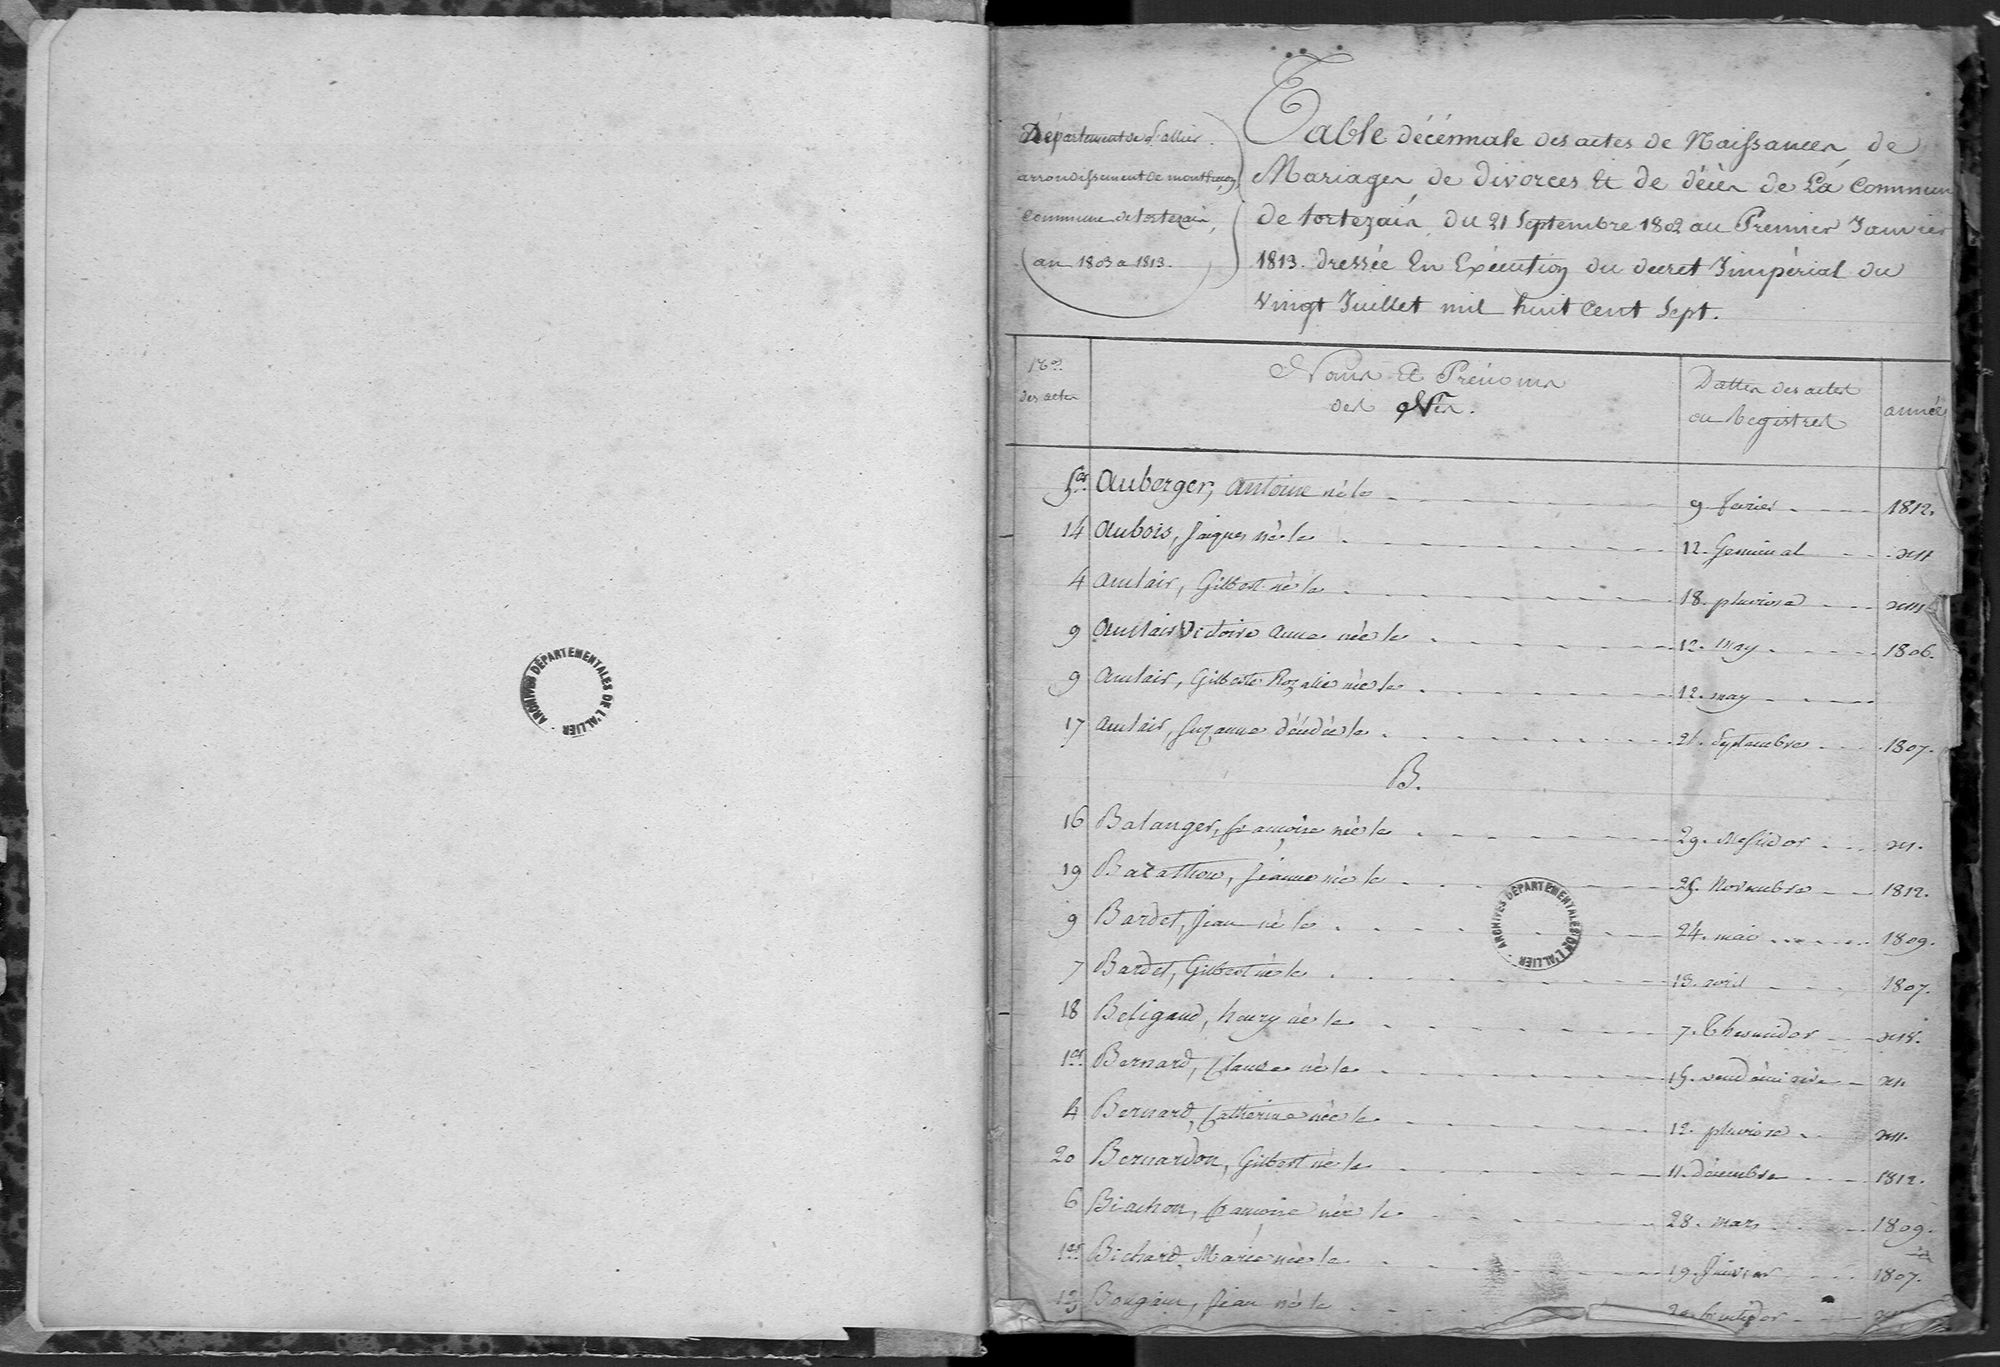 ARCHIVES DÉPARTEMENTALES DE L'ALLIER
Département de l'allier.
arrondissement de montluçon
Commune de tortezain,
an 1803 a 1813.
Table décénnale des actes de Naissances, de
Mariages de divorces Et de décès de La Commune
de tortezain, du 21 Septembre 1802 au Premier Janvier
1813. dressée En Exécution du decret Impérial du
vingt Juillet mil huit cent Sept.
Nos des actes
Noms Et Prénoms des Nés.
Dattes des actes ou Registres
année
1er Auberger, Antoine né le 9 fevrier 1812.
14 Aubois, Jaques né le 12. Germinal
4 Auclair, Gilbert né le 18. pluviose xiii
9 Auclair Victoire Anne née le 12. may 1806.
9 Auclair, Gilberte Rozalie née le 12. may
17 Auclair, Suzanne décédée le 21. Septembre 1807.
B.
16 Balanger, françoise née le 29. Messidor
19 Bazathon, Jeanne née le 25. Novembre 1812.
9 Bardet, Jean né le 24. mai 1809.
7 Bardet, Gilbert né le 13. avril 1807.
18 Beligaud, henry né le 7. Thermidor
1er Bernard, Claude né le 15. vendémiaire
4 Bernard, Catherine née le 12. pluviose
20 Bernardon, Gilbert né le 11. décembre 1812.
6 Biachon, françoise née le 28. mars 1809.
1er Bichard, Marie née le 19. Janvier 1807.
Bougain, Jean né le
ARCHIVES DÉPARTEMENTALES DE L'ALLIER